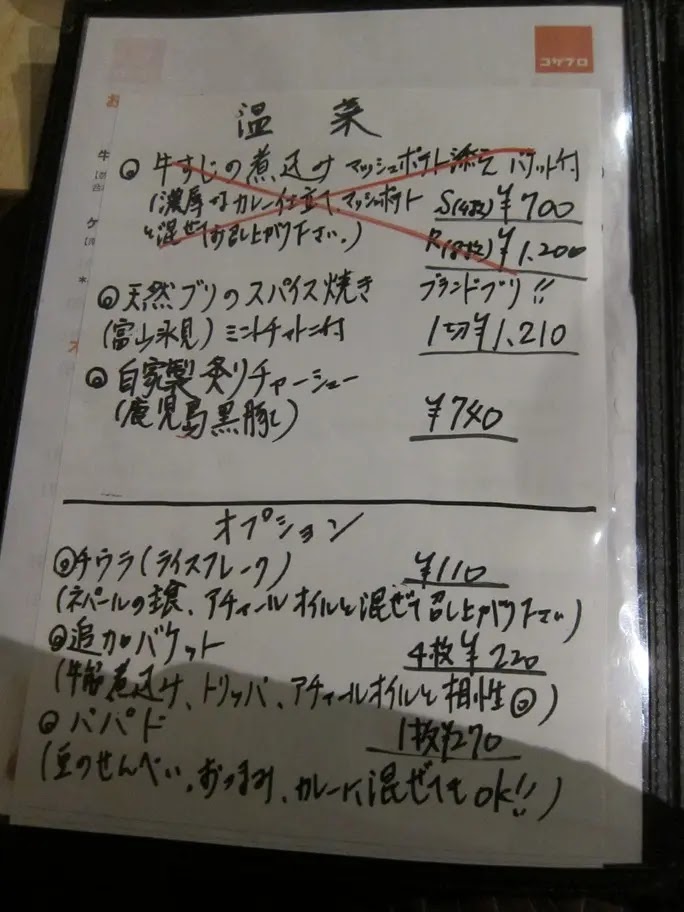 コケプロ
お
温菜
牛
牛すじの煮込み マッシュポテト添え バケット付
(濃厚なカレー仕立て、マッシュポテト S(4枚)¥700
と混ぜてお召し上がり下さい。) R(8枚)¥1,200
ケ
*
天然ブリのスパイス焼き ブランドブリ!!
(富山氷見) ミントチャトニ付 1切¥1,210
自家製炙りチャーシュー
(鹿児島黒豚) ¥740
オプション
チウラ(ライスフレーク) ¥110
(ネパールの主食、アチャールオイルと混ぜて召し上がり下さい)
追加バケット 4枚¥220
(牛筋煮込み、トリッパ、アチャールオイルと相性◎)
パパド 1枚¥270
(豆のせんべい。おつまみ、カレーに混ぜてもOK!!)